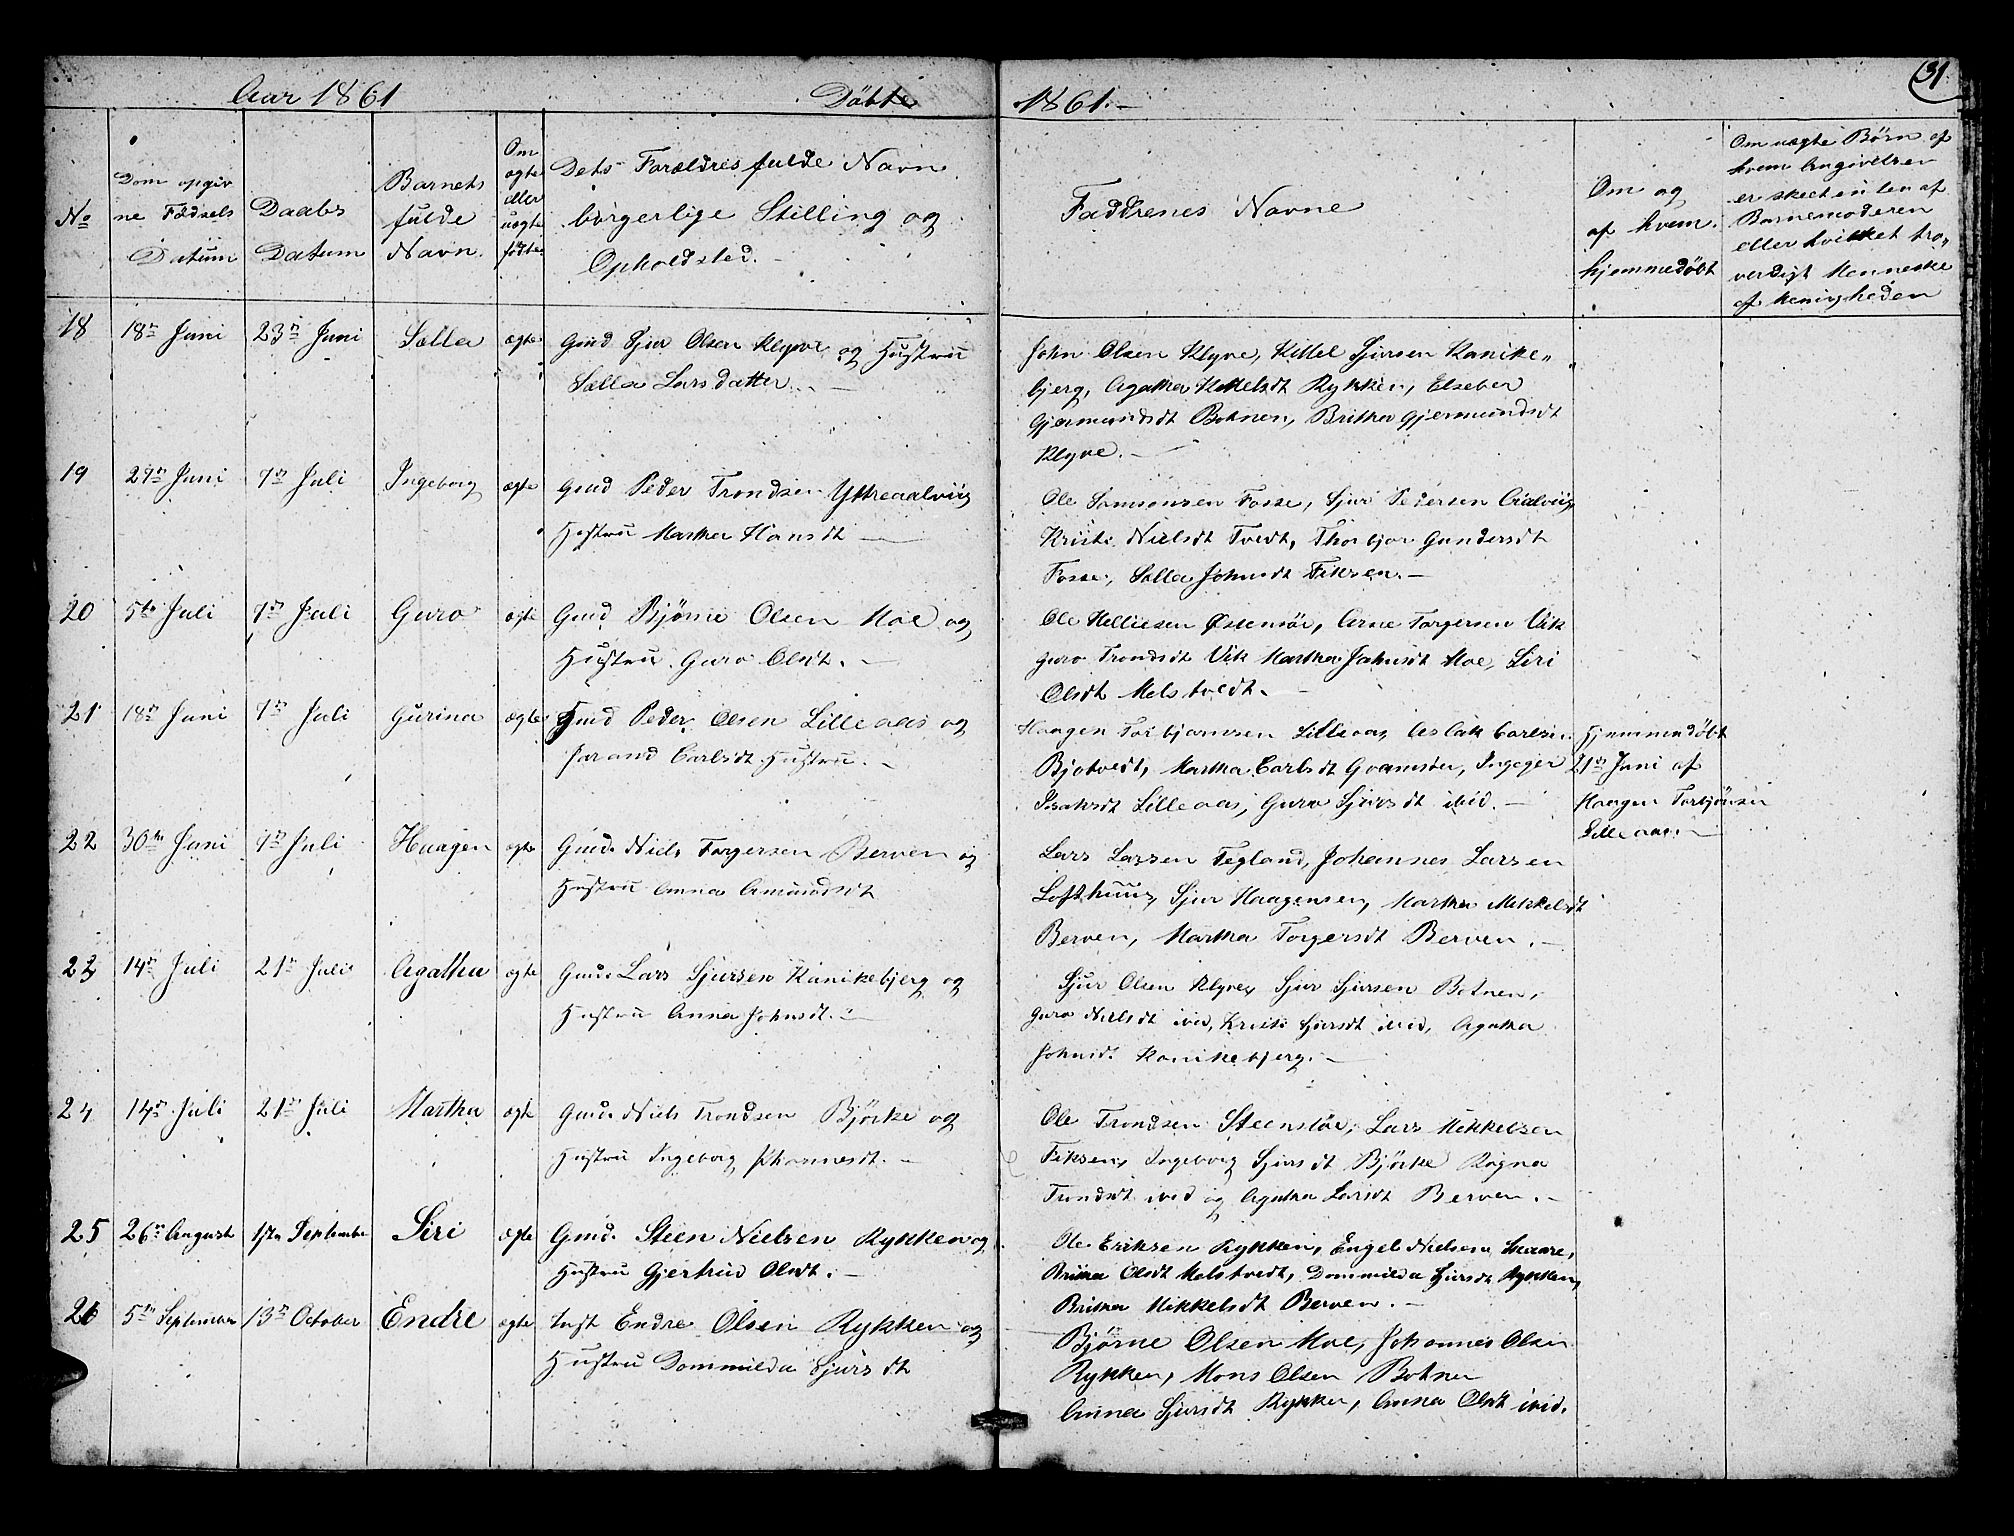 31
Aar 1861 Döbte 1861.-
No
Dom opgiv
ne Födsels
Datum
Daabs
Datum
Barnets
fulde
Navn.
Om
ægte
eller
uægte
födte
Dets Forældres fulde Navn
borgerlige Stilling og
Opholdsted.-
Faddrenes Navne
Om og
af hvem
hjemmedöbt
Om uægte Börn af
hvem Angivelsen
er skeet enten af
Barnemoderen
eller hvilket tro„
verdigt Menneske
af Menigheden
18 18n Juni 23n Juni Sella ægte Gmd Sjur Olsen Klyve og Hustru
Sella Larsdatter. -
John Olsen Klyve, Kittel Sjursen Kanike„
bjerg, Agatha Mikkelsdt Rykken, Elseber
Gjermundsdt Botnen, Britha Gjermundsdt
Klyve. -
19 29n Juni 7n Juli Ingeborg ægte Gmd Peder Trondsen Ytreaalviig
Hustru Martha Hansdt -
Ole Samsonsen Fosse, Sjur Pedersen Aalviig
Kristi Nielsdt Tvedt, Thorbjor Gundersdt
Fosse, Sella Johnsdt Fiksen. -
20 5te Juli 7n Juli Guro ægte Gmd Bjørne Olsen Moe og
Hustru Guro Olsdt. -
Ole Helliesen Østensöe, Arne Torgersen Vik
Guro Trondsdt Vik Martha Johnsdt Moe, Siri
Olsdt Melstvedt. -
21 18n Juni 7n Juli Gurina ægte Gmd Peder Olsen Lilleaas og
Jorand Carlsdt Hustru. -
Haagen Torbjørnsen Lilleaas, Aslak Carlsen
Bjotvedt, Martha Carlsdt Qvamsøe, Ingeger
Isaksdt Lilleaas, Guro Sjursdt ibid. -
Hjemmedöbt
21n Juni af
Haagen Torbjönsen
Lilleaas. -
22 30te Juni 7n Juli Haagen ægte Gmd. Niels Torgersen Berven og
Hustru Anna Amundsdt
Lars Larsen Tegland, Johannes Larsen
Lofthuus, Sjur Haagensen, Martha Mikkelsdt
Berven, Martha Torgersdt Berven. -
23 14n Juli 21n Juli Agatha ægte Gmd. Lars Sjursen Kanikebjerg og
Hustru Anna Johnsdt. -
Sjur Olsen Klyve, Sjur Sjursen Botnen,
Guro Nielsdt ibid, Kristi Sjursdt ibid, Agatha
Johnsdt Kanikebjerg. -
24 14n Juli 21n Juli Martha ægte Gmd. Niels Trondsen Bjørke og
Hustru Ingeborg Johannesdt. -
Ole Trondsen Steenstöe, Lars Mikkelsen
Fiksen, Ingeborg Sjursdt Bjørke Ragna
Trondsdt ibid og Agatha Larsdt Berven. -
25 26n August 1ste September Siri ægte Gmd. Steen Nielsen Rykken og
Hustru Gjertrud Olsdt. -
Ole Eriksen Rykken, Engel Nielsen Skaare,
Britha Olsdt Melstvedt, Dommilda Sjursdt Rykken,
Britha Mikkelsdt Berven. -
26 5te September 13n October Endre ægte Inst Endre Olsen Rykken og
Hustru Dommilda Sjursdt
Bjørne Olsen Moe, Johannes Olsen
Rykken, Mons Olsen Botnen
Anna Sjursdt Rykken, Anna Olsdt ibid.